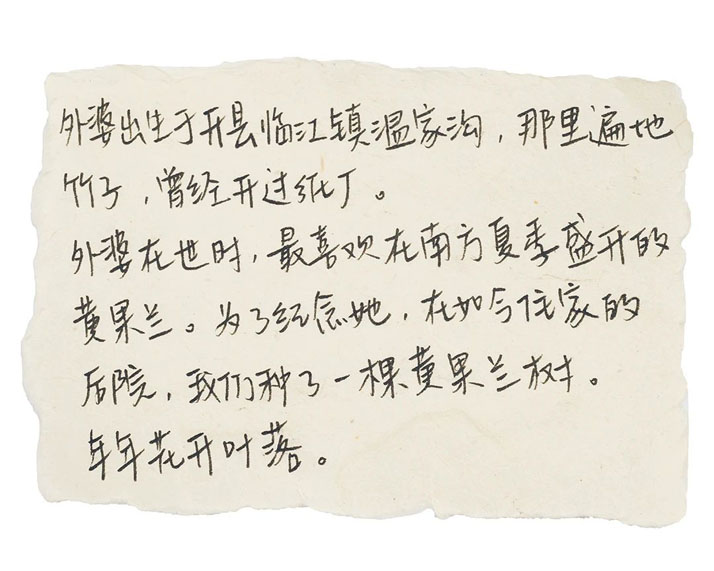 外婆出生于开县临江镇温家沟，那里遍地
竹子，曾经开过纸厂。
外婆在世时，最喜欢在南方夏季盛开的
黄果兰。为了纪念她，在如今住家的
后院，我们种了一棵黄果兰树。
年年花开叶落。